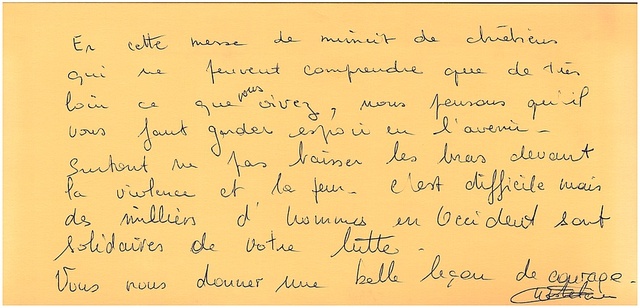 En cette messe de minuit de chrétiens
qui ne peuvent comprendre que de très
loin ce que vous vivez, nous pensons qu'il
vous faut garder espoir en l'avenir -
Surtout ne pas baisser les bras devant
la violence et la peur - c'est difficile mais
des milliers d'hommes en Occident sont
solidaires de votre lutte -
Vous nous donner une belle leçon de courage -